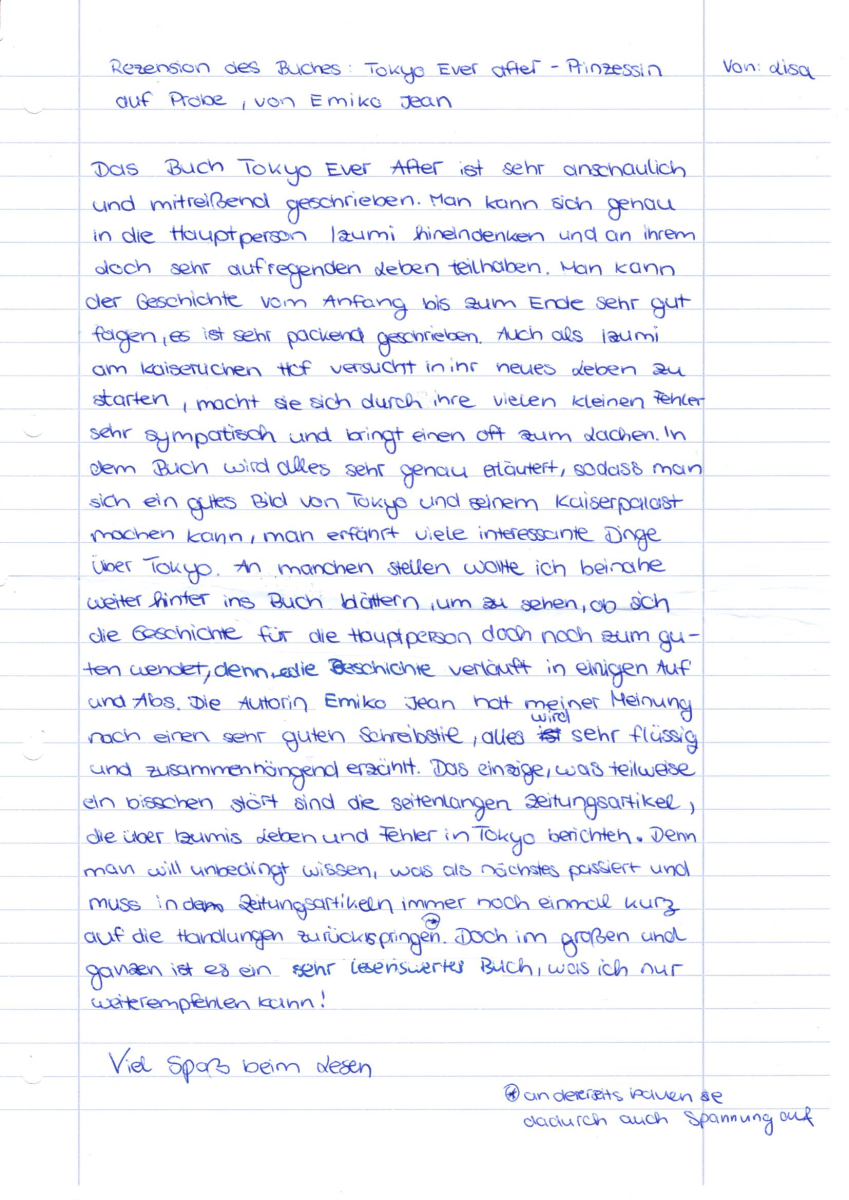 Rezension des Buches: Tokyo Ever After - Prinzessin
Von: Lisa
auf Probe, von Emiko Jean
Das Buch Tokyo Ever After ist sehr anschaulich
und mitreißend geschrieben. Man kann sich genau
in die Hauptperson Izumi hineindenken und an ihrem
doch sehr aufregenden Leben teilhaben. Man kann
der Geschichte vom Anfang bis zum Ende sehr gut
folgen, es ist sehr packend geschrieben. Auch als Izumi
am kaiserlichen Hof versucht in ihr neues Leben zu
starten, macht sie sich durch ihre vielen kleinen Fehler
sehr sympatisch und bringt einen oft zum Lachen. In
dem Buch wird alles sehr genau erläutert, sodass man
sich ein gutes Bild von Tokyo und seinem Kaiserpalast
machen kann, man erfährt viele interessante Dinge
über Tokyo. An manchen stellen wollte ich beinahe
weiter hinter ins Buch blättern, um zu sehen, ob sich
die Geschichte für die Hauptperson doch noch zum gu-
ten wendet, denn die Geschichte verläuft in einigen Auf
und Abs. Die Autorin Emiko Jean hatt meiner Meinung
nach einen sehr guten Schreibstie, alles ist wird sehr flüssig
und zusammenhängend erzählt. Das einzige, was teilweise
ein bisschen stört sind die seitenlangen Zeitungsartikel,
die über Izumis Leben und Fehler in Tokyo berichten. Denn
man will unbedingt wissen, was als nächstes passiert und
muss in den Zeitungsartikeln immer noch einmal kurz
auf die Handlungen zurückspringen. Doch im großen und
ganzen ist es ein sehr lesenswertes Buch, was ich nur
weiterempfehlen kann!
Viel Spaß beim Lesen
* andererseits bauen sie
dadurch auch Spannung auf